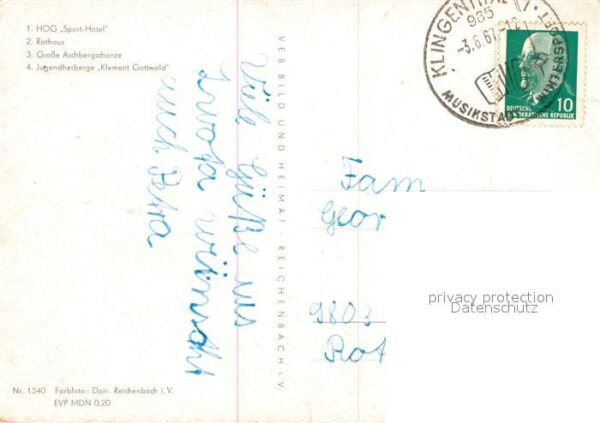 1. HOG „Sport-Hotel"
2. Rathaus
3. Große Aschbergschanze
4. Jugendherberge „Klement Gottwald"
Viele Grüße aus
Zwota wünscht
auch Petra
VEB BILD UND HEIMAT REICHENBACH i. V
KLINGENTHAL
985
-3.6.67-12
MUSIKSTADT
WINTERSPORT
DEUTSCHE
DEMOKRATISCHE REPUBLIK
10
Fam
Geor
9803
Rot
privacy protection
Datenschutz
Nr. 1540 Farbfoto: Darr, Reichenbach i. V.
EVP MDN 0,20